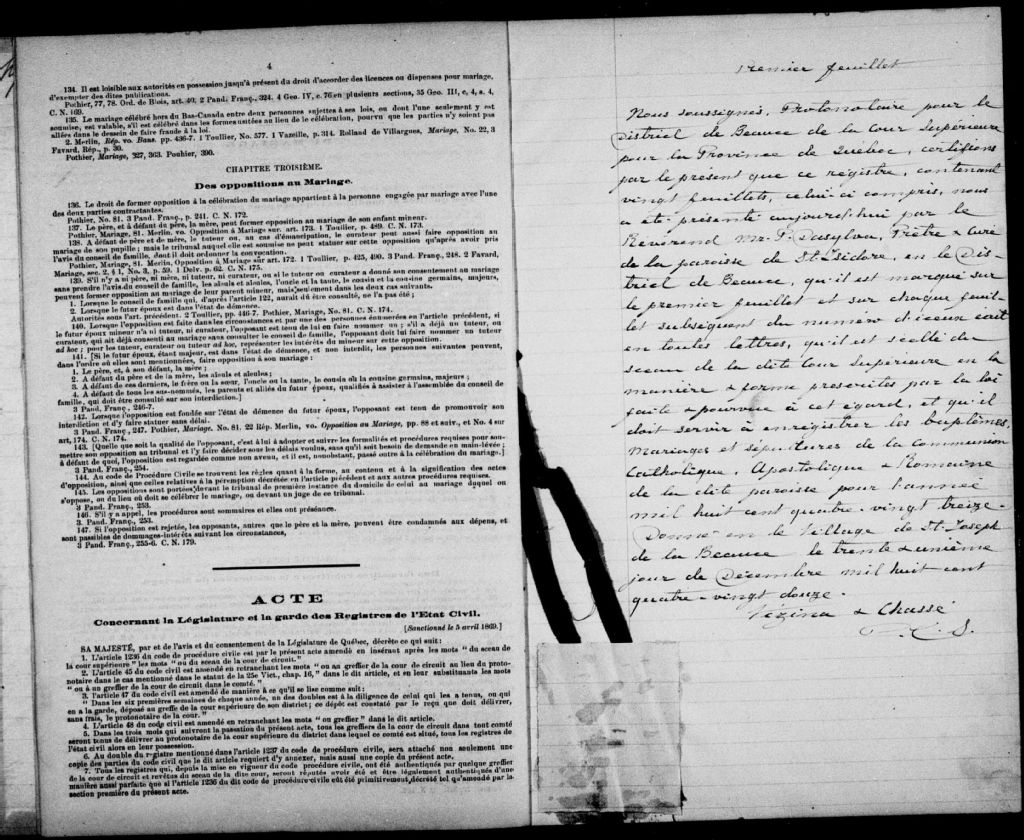 4
134. Il est loisible aux autorités en possession jusqu'à présent du droit d'accorder des licences ou dispenses pour mariage,
d'exempter des dites publications.
Pothier, 77, 78. Ord. de Blois, art. 40, 2 Pand. Franç., 324. 4 Geo. IV, c. 76 en plusieurs sections, 35 Geo. III, c, 4, s. 4,
C. N. 169.
135. Le mariage célébré hors du Bas-Canada entre deux personnes sujettes à ses lois, ou dont l'une seulement y est
soumise, est valable, s'il est célébré dans les formes usitées au lieu de la célébration, pourvu que les parties n'y soient pas
allées dans le dessein de faire fraude à la loi.
2. Merlin, Rép. vo. Bans. pp. 436-7. 1 Toullier, No. 577. 1 Vazeille, p. 314. Rolland de Villargues, Mariage, No. 22, 3
Favard, Rép., p. 30.
Pothier, Mariage, 327, 363. Pouhier, 390.
CHAPITRE TROISIÈME.
Des oppositions au Mariage.
136. Le droit de former opposition à la célébration du mariage appartient à la personne engagée par mariage avec l'une
des deux parties contractantes.
Pothier, No. 81. 3 Pand. Franç., p. 241. C. N. 172.
137. Le père, et à défaut du père, la mère, peut former opposition au mariage de son enfant mineur.
Pothier, Mariage, 81. Merlin, vo. Opposition à Mariage sur. art. 173. 1 Toullier, p. 489. C. N. 173.
138. A défaut de père et de mère, le tuteur ou, au cas d'émancipation, le curateur peut aussi faire opposition au
mariage de son pupille; mais le tribunal auquel elle est soumise ne peut statuer sur cette opposition qu'après avoir pris
l'avis du conseil de famille, dont il doit ordonner la convocation.
Pothier, Mariage, 81. Merlin, Opposition à Mariage sur art. 172. 1 Toullier, p. 425, 490. 3 Pand. Franç., 248. 2 Favard,
Mariage, sec. 2, § 1, No. 3, p. 59. 1 Delv. p. 62. C. N. 175.
139. S'il n'y a ni père, ni mère, ni tuteur, ni curateur, ou si le tuteur ou curateur a donné son consentement au mariage
sans prendre l'avis du conseil de famille, les aïeuls et aïeules, l'oncle et la tante, le cousin et la cousine germains, majeurs,
peuvent former opposition au mariage de leur parent mineur, mais seulement dans les deux cas suivants.
1. Lorsque le conseil de famille qui, d'après l'article 122, aurait dû être consulté, ne l'a pas été;
2. Lorsque le futur époux est dans l'état de démence.
Autorités sous l'art. précédent. 2 Toullier, pp. 446-7. Pothier, Mariage, No. 81. C. N. 174.
140. Lorsque l'opposition est faite dans les circonstances et par une des personnes énumérées en l'article précédent, si
le futur époux mineur n'a ni tuteur, ni curateur, l'opposant est tenu de lui en faire nommer un; s'il a déjà un tuteur, ou
curateur, qui ait déjà consenti au mariage sans consulter le conseil de famille, l'opposant doit lui faire nommer un tuteur
ad hoc; pour les tuteur, curateur ou tuteur ad hoc, représenter les intérêts du mineur sur cette opposition.
141. [Si le futur époux, étant majeur, est dans l'état de démence, et non interdit, les personnes suivantes peuvent,
dans l'ordre où elles sont mentionnées, faire opposition à son mariage:
1. Le père, et, à son défaut, la mère;
2. A défaut du père et de la mère, les aïeuls et aïeules;
3. A défaut de ces derniers, le frère ou la sœur, l'oncle ou la tante, le cousin ou la cousine germains, majeurs;
4. A défaut de tous les sus-nommés, les parents et alliés du futur époux, qualifiés à assister à l'assemblée du conseil de
famille, qui doit être consulté sur son interdiction.]
3 Pand. Franç., 246-7.
142. Lorsque l'opposition est fondée sur l'état de démence du futur époux, l'opposant est tenu de promouvoir son
interdiction et d'y faire statuer sans délai.
3 Pand. Franç., 247. Pothier, Mariage, No. 81. 22 Rép. Merlin, vo. Opposition au Mariage, pp. 88 et suiv., et No. 4 sur
art, 174, C. N. 174.
143. [Quelle que soit la qualité de l'opposant, c'est à lui à adopter et suivre les formalités et procédures requises pour sou-
mettre son opposition au tribunal et l'y faire décider sous les délais voulus, sans qu'il soit besoin de demande en main-levée;
à défaut de quoi, l'opposition est regardée comme non avenu, et il est, nonobstant, passé outre à la célébration du mariage.]
3 Pand. Franç., 254.
144. Au code de Procédure Civile se trouvent les règles quant à la forme, au contenu et à la signification des actes
d'opposition, ainsi que celles relatives à la péremption décrétée en l'article précédent et aux autres procédures requises.
145. Les oppositions sont portées devant le tribunal de première instance du domicile de celui au mariage duquel on
s'oppose, ou du lieu où doit se célébrer le mariage, ou devant un juge de ce tribunal.
3 Pand. Franç., 253.
146. S'il y a appel, les procédures sont sommaires et elles ont préséance.
3. Pand. Franç., 253.
147. Si l'opposition est rejetée, les opposants, autres que le père et la mère, peuvent être condamnés aux dépens, et
sont passibles de dommages-intérêts suivant les circonstances,
3 Pand. Franç., 255-6. C. N. 179.
ACTE
Concernant la Législature et la garde des Registres de l'Etat Civil.
[Sanctionné le 5 avril 1869.]
SA MAJESTÉ, par et de l'avis et du consentement de la Législature de Québec, décrète ce qui suit:
1. L'article 1236 du code de procédure civile est par le présent acte amendé en insérant après les mots "du sceau de
la cour supérieure" les mots "ou du sceau de la cour de circuit."
2. L'article 45 du code civil est amendé en retranchant les mots "ou au greffier de la cour de circuit au lieu du proto-
notaire dans le cas mentionné dans le statut de la 25e Vict., chap. 16," dans le dit article, et en leur substituants les mots
"ou à un greffier de la cour de circuit dans le comté."
3. l'article 47 du code civil est amendé de manière à ce qu'il se lise comme suit:
"Dans les six premières semaines de chaque année, un des doubles est à la diligence de celui qui les a tenus, ou qui
en a la garde, déposé au greffe de la cour supérieure de son district; ce dépôt est constaté par le reçu que doit délivrer,
sans frais, le protonotaire de la cour."
4. L'article 48 du code civil est amendé en retranchant les mots "ou greffier" dans le dit article.
5. Dans les trois mois qui suivront la passation du présent acte, tous les greffiers de la cour de circuit dans tout comté
seront tenus de délivrer au protonotaire de la cour supérieure du district dans lequel ce comté est situé, tous les registres de
l'état civil alors en leur possession.
6. Au double du registre mentionné dans l'article 1237 du code de procédure civile, sera attaché non seulement une
copie des parties du code civil que le dit article requiert d'y annexer, mais aussi une copie du présent acte.
7. Tous les registres qui, depuis la mise en vigueur du code procédure civile, ont été authentiqués par quelque greffier
de la cour de circuit et revêtus du sceau de la dite cour, seront réputés avoir été et être légalement authentiqués d'une
manière aussi parfaite que si l'article 1236 du dit code de procédure civile eût été primitivement décrété tel qu'amendé par la
section première du présent acte.
Premier feuillet
Nous soussignés, Protonotaire pour le
District de Beauce de la Cour Supérieure
pour la Province de Québec, certifions
par le présent que ce régistre, contenant
vingt feuillets, celui-ci compris, nous
a été présenté aujourd'hui par le
Révérend Mr P. Dasylva, Prêtre & Curé
de la paroisse de St-Isidore, en le Dis-
trict de Beauce, qu'il est marqué sur
le premier feuillet et sur chaque feuil-
let subséquent du numéro d'iceux écrit
en toutes lettres, qu'il est scellé du
sceau de la dite Cour Supérieure en la
manière & forme prescrites par la loi
faite & pourvue à cet égard, et qu'il
doit servir à enregistrer les baptêmes,
mariages et sépultures de la Communion
Catholique, Apostolique & Romaine
de la dite paroisse pour l'année
mil huit cent quatre-vingt treize.
Donné en le Village de St-Joseph
de la Beauce le trente & unième
jour de Décembre mil huit cent
quatre-vingt douze.
Vézina & Chassé
P. C. S.